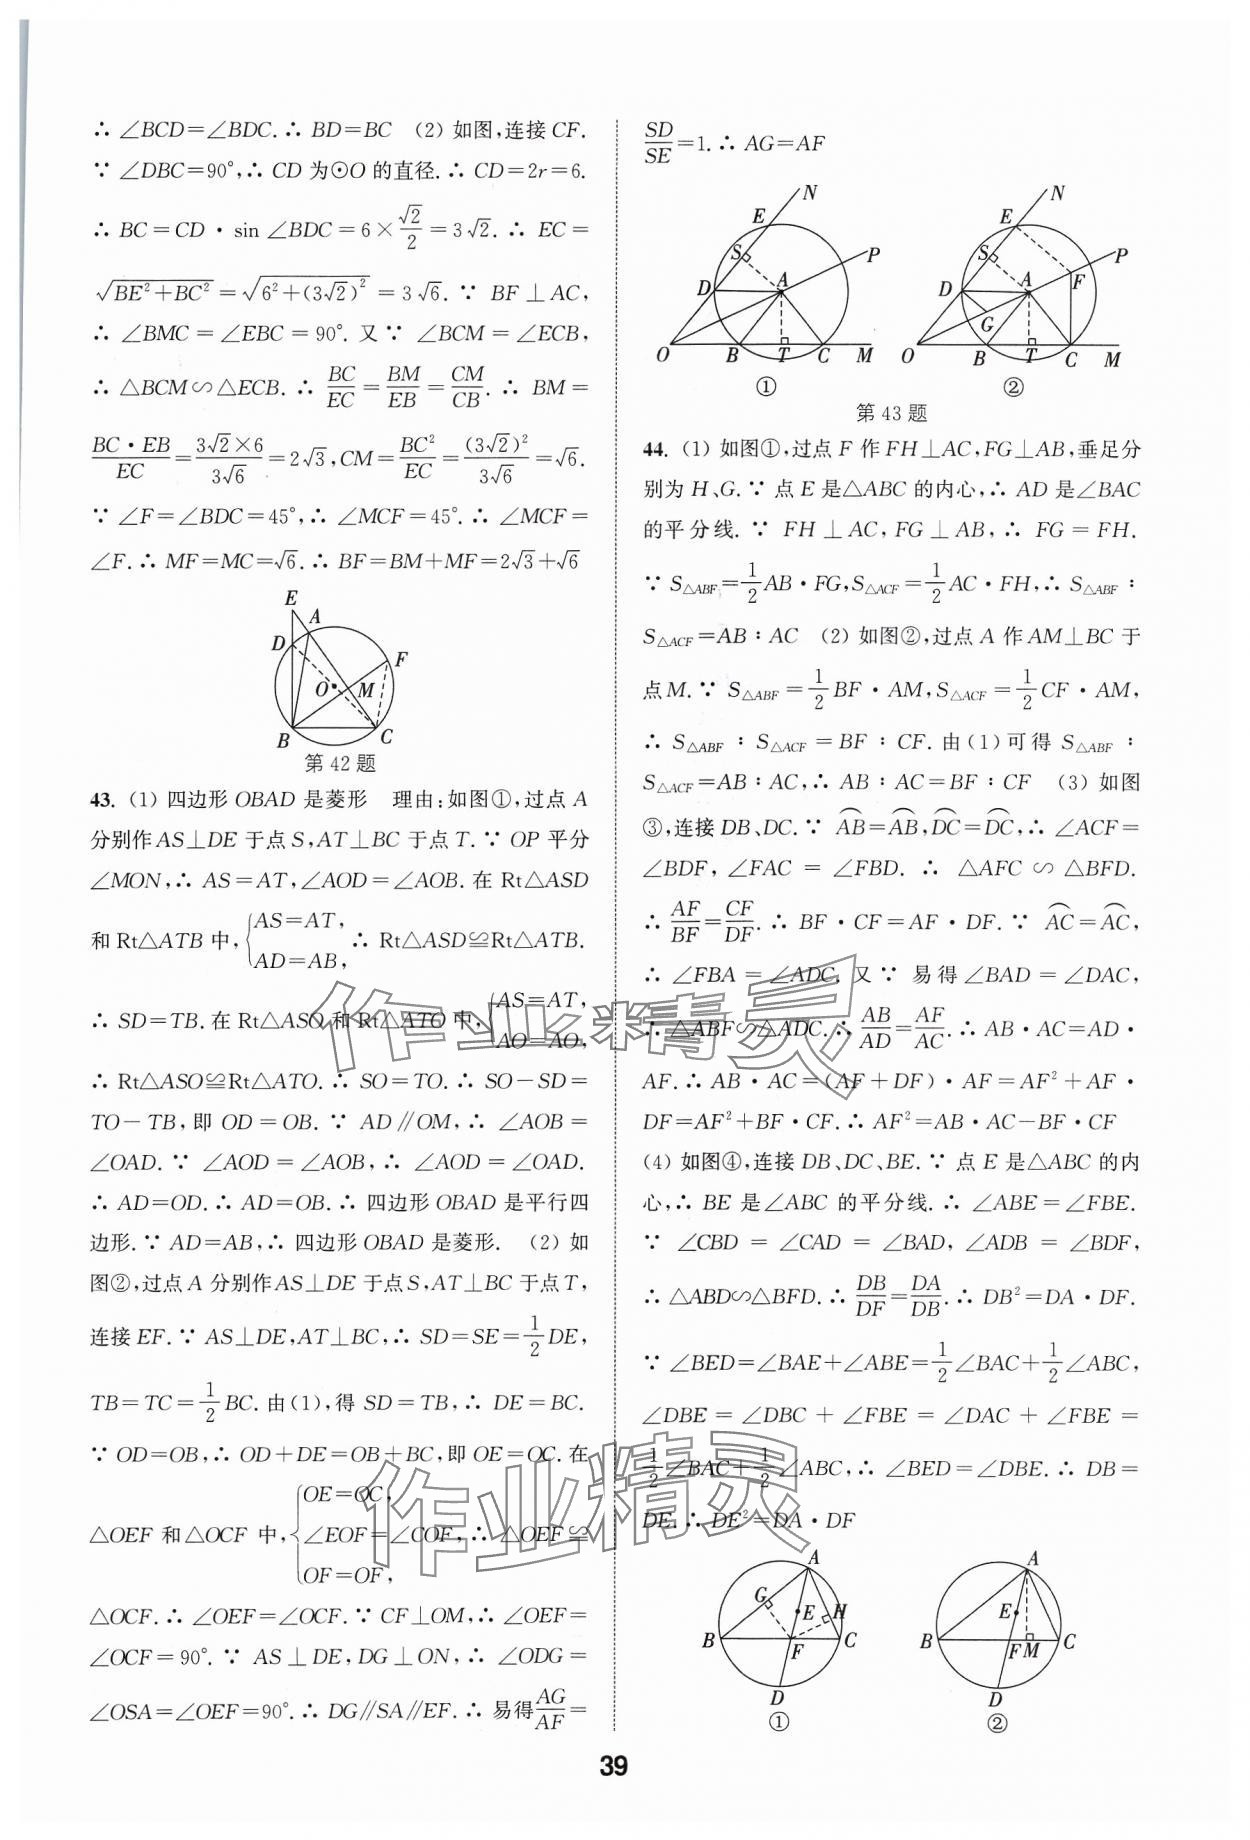 ∴ ∠BCD=∠BDC. ∴ BD=BC (2) 如图,连接 CF.
∵ ∠DBC=90°,∴ CD 为⊙O 的直径. ∴ CD=2r=6.
∴ BC=CD·sin ∠BDC=6×√2/2=3√2. ∴ EC=
√(BE²+BC²)=√(6²+(3√2)²)=3√6. ∵ BF⊥AC,
∴ ∠BMC=∠EBC=90°. 又∵ ∠BCM=∠ECB,
∴ △BCM∽△ECB. ∴ BC/EC=BM/EB=CM/CB. ∴ BM=
BC·EB/EC=3√2×6/3√6=2√3,CM=BC²/EC=(3√2)²/3√6=√6.
∵ ∠F=∠BDC=45°,∴ ∠MCF=45°. ∴ ∠MCF=
∠F. ∴ MF=MC=√6. ∴ BF=BM+MF=2√3+√6
E
A
D
F
O
M
B
C
第 42 题
43. (1) 四边形 OBAD 是菱形 理由:如图①,过点 A
分别作 AS⊥DE 于点 S,AT⊥BC 于点 T. ∵ OP 平分
∠MON,∴ AS=AT,∠AOD=∠AOB. 在 Rt△ASD
和 Rt△ATB 中,{AS=AT, AD=AB, ∴ Rt△ASD≌Rt△ATB.
∴ SD=TB. 在 Rt△ASO 和 Rt△ATO 中,{AS=AT, AO=AO,
∴ Rt△ASO≌Rt△ATO. ∴ SO=TO. ∴ SO-SD=
TO-TB,即 OD=OB. ∵ AD∥OM,∴ ∠AOB=
∠OAD. ∵ ∠AOD=∠AOB,∴ ∠AOD=∠OAD.
∴ AD=OD. ∴ AD=OB. ∴ 四边形 OBAD 是平行四
边形. ∵ AD=AB,∴ 四边形 OBAD 是菱形. (2) 如
图②,过点 A 分别作 AS⊥DE 于点 S,AT⊥BC 于点 T,
连接 EF. ∵ AS⊥DE,AT⊥BC,∴ SD=SE=1/2DE,
TB=TC=1/2BC. 由(1),得 SD=TB,∴ DE=BC.
∵ OD=OB,∴ OD+DE=OB+BC,即 OE=OC. 在
△OEF 和△OCF 中,{OE=OC, ∠EOF=∠COF, OF=OF, ∴ △OEF≌
△OCF. ∴ ∠OEF=∠OCF. ∵ CF⊥OM,∴ ∠OEF=
∠OCF=90°. ∵ AS⊥DE,DG⊥ON,∴ ∠ODG=
∠OSA=∠OEF=90°. ∴ DG∥SA∥EF. ∴ 易得AG/AF=
SD/SE=1. ∴ AG=AF
N
E
S
P
A
D
O
B
T
C
M
①
N
E
S
P
A
F
D
G
O
B
T
C
M
②
第 43 题
44. (1) 如图①,过点 F 作 FH⊥AC,FG⊥AB,垂足分
别为 H、G. ∵ 点 E 是△ABC 的内心,∴ AD 是∠BAC
的平分线. ∵ FH⊥AC,FG⊥AB,∴ FG=FH.
∵ S△ABF=1/2AB·FG,S△ACF=1/2AC·FH,∴ S△ABF∶
S△ACF=AB∶AC (2) 如图②,过点 A 作 AM⊥BC 于
点 M. ∵ S△ABF=1/2BF·AM,S△ACF=1/2CF·AM,
∴ S△ABF∶S△ACF=BF∶CF. 由(1)可得 S△ABF∶
S△ACF=AB∶AC,∴ AB∶AC=BF∶CF (3) 如图
③,连接 DB、DC. ∵ ⌒AB=⌒AB,⌒DC=⌒DC,∴ ∠ACF=
∠BDF,∠FAC=∠FBD. ∴ △AFC∽△BFD.
∴ AF/BF=CF/DF. ∴ BF·CF=AF·DF. ∵ ⌒AC=⌒AC,
∴ ∠FBA=∠ADC. 又∵ 易得∠BAD=∠DAC,
∴ △ABF∽△ADC. ∴ AB/AD=AF/AC. ∴ AB·AC=AD·
AF. ∴ AB·AC=(AF+DF)·AF=AF²+AF·
DF=AF²+BF·CF. ∴ AF²=AB·AC-BF·CF
(4) 如图④,连接 DB、DC、BE. ∵ 点 E 是△ABC 的内
心,∴ BE 是∠ABC 的平分线. ∴ ∠ABE=∠FBE.
∵ ∠CBD=∠CAD=∠BAD,∠ADB=∠BDF,
∴ △ABD∽△BFD. ∴ DB/DF=DA/DB. ∴ DB²=DA·DF.
∵ ∠BED=∠BAE+∠ABE=1/2∠BAC+1/2∠ABC,
∠DBE=∠DBC+∠FBE=∠DAC+∠FBE=
1/2∠BAC+1/2∠ABC,∴ ∠BED=∠DBE. ∴ DB=
DE. ∴ DE²=DA·DF
A
G
E
H
B
F
C
D
①
A
E
B
F
M
C
D
②
作业精灵
作业精灵
39